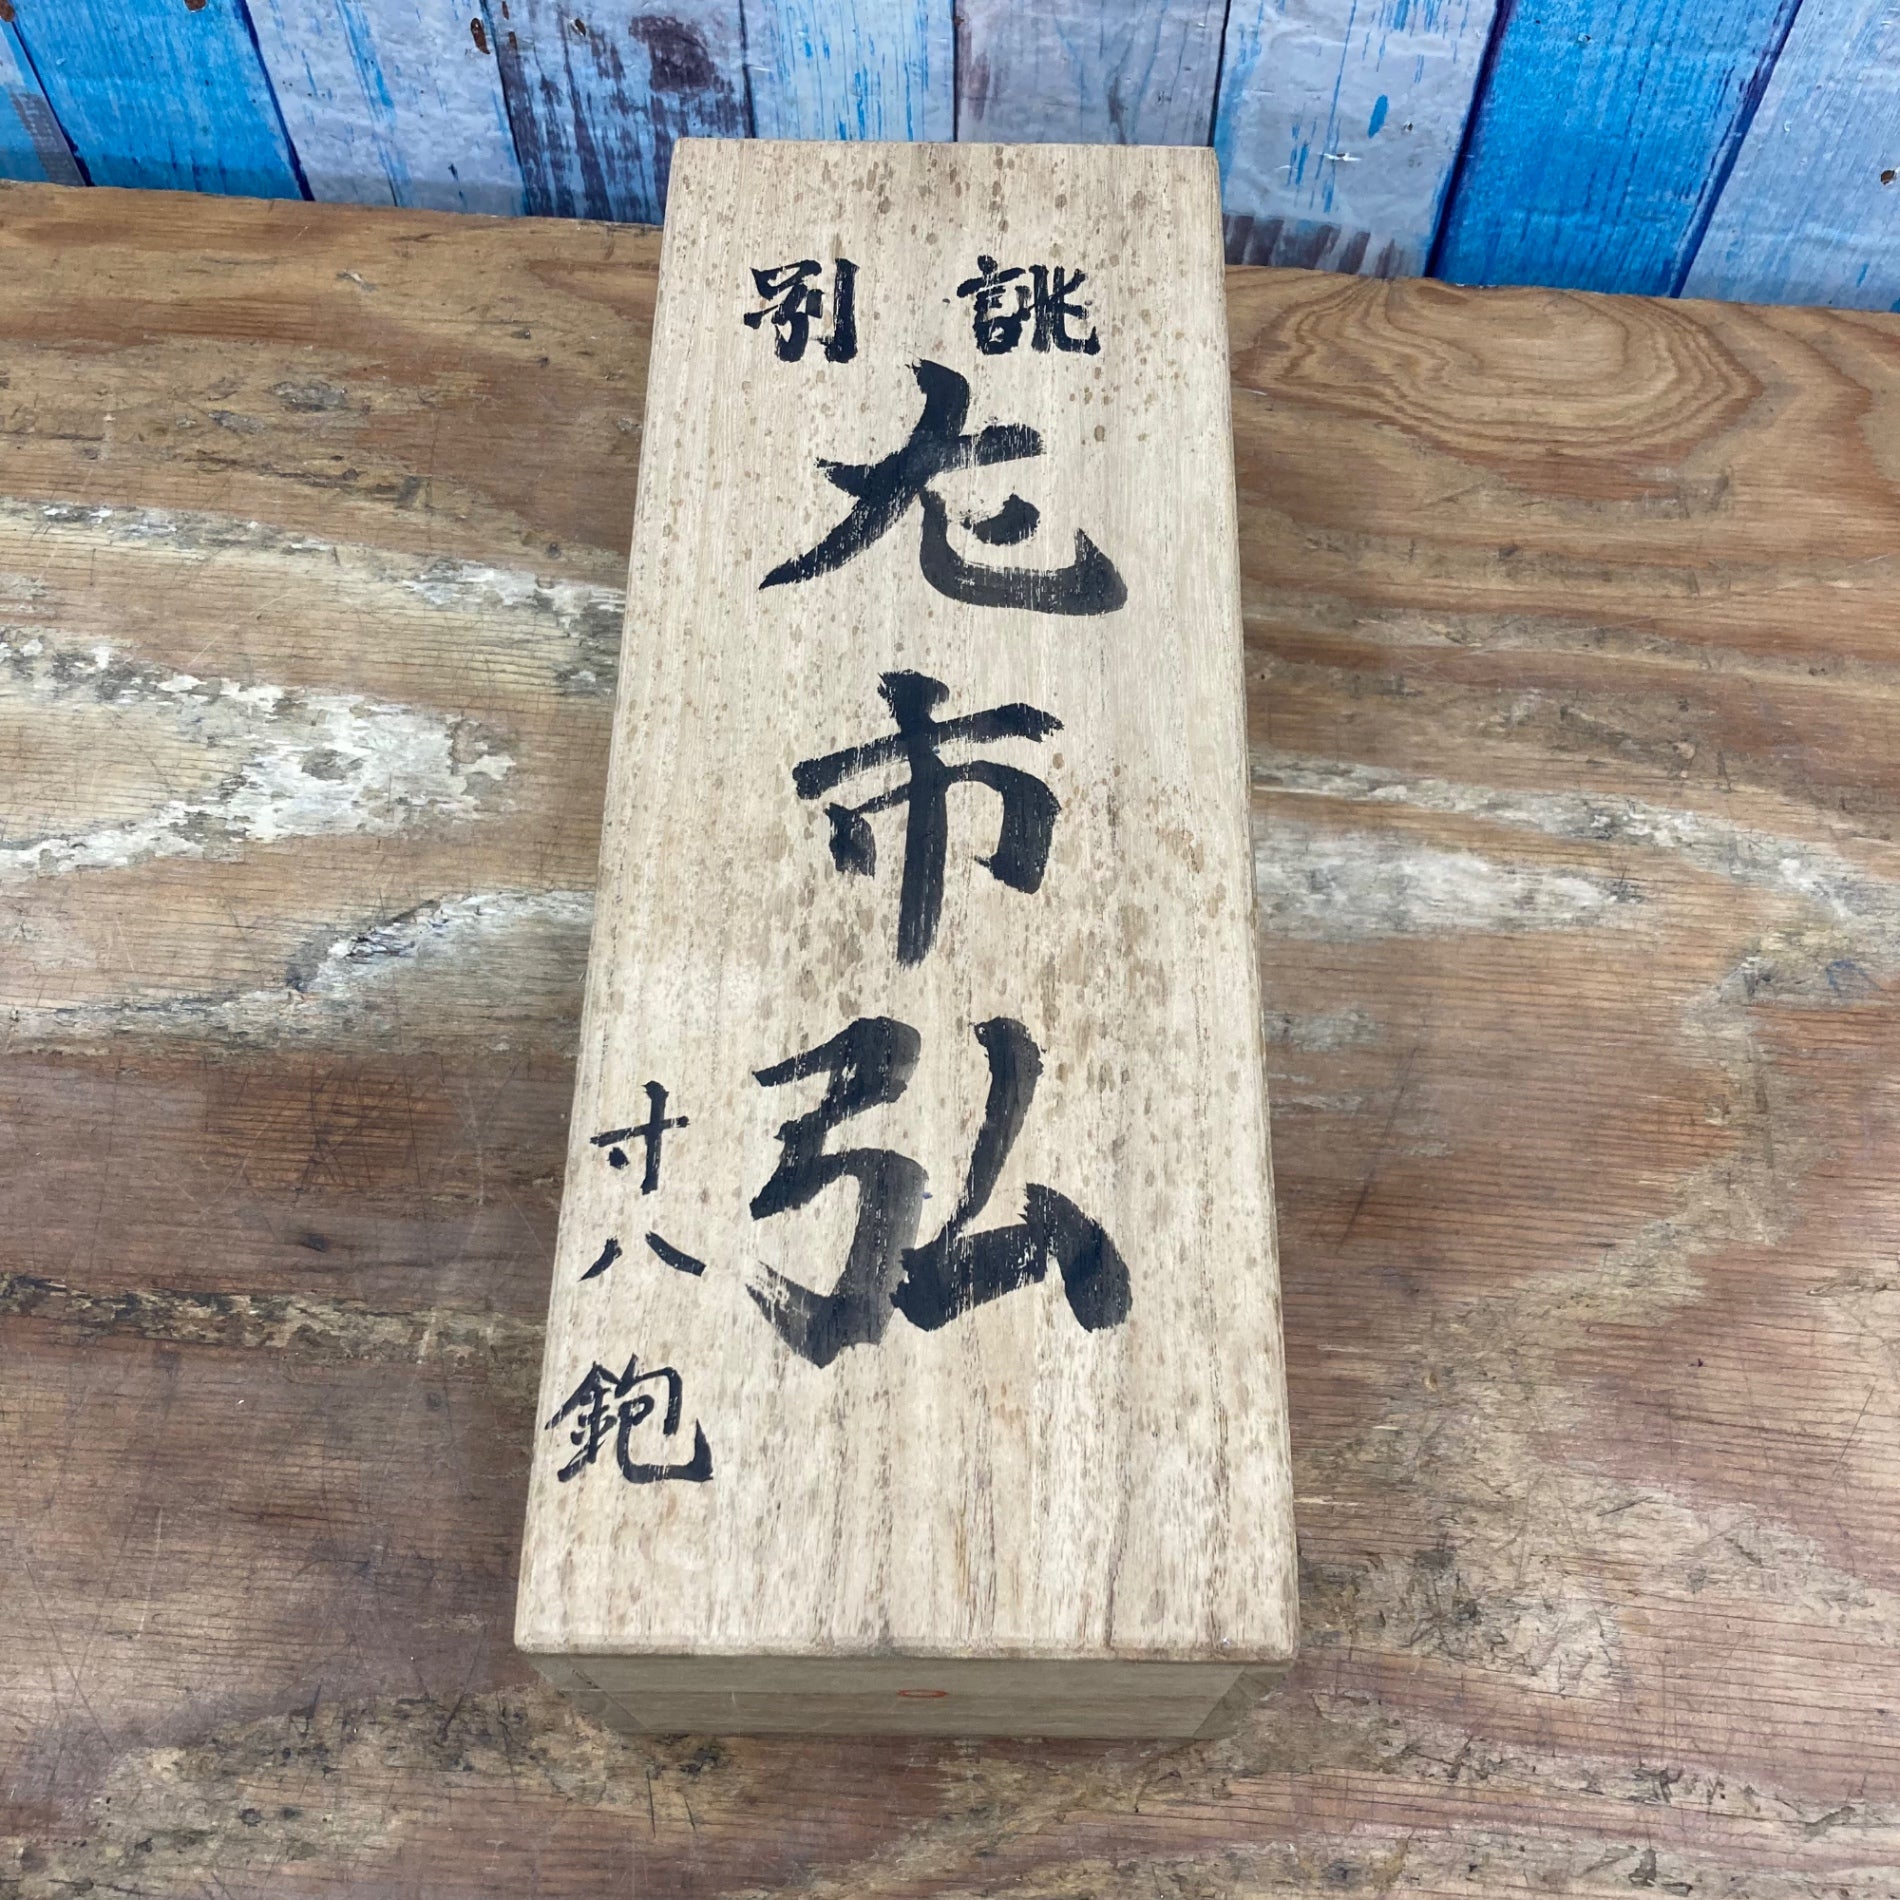 別誂
左市弘
寸八 鉋